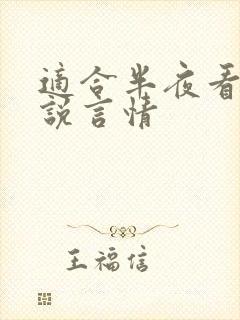 適合半夜看
說言情
王福信